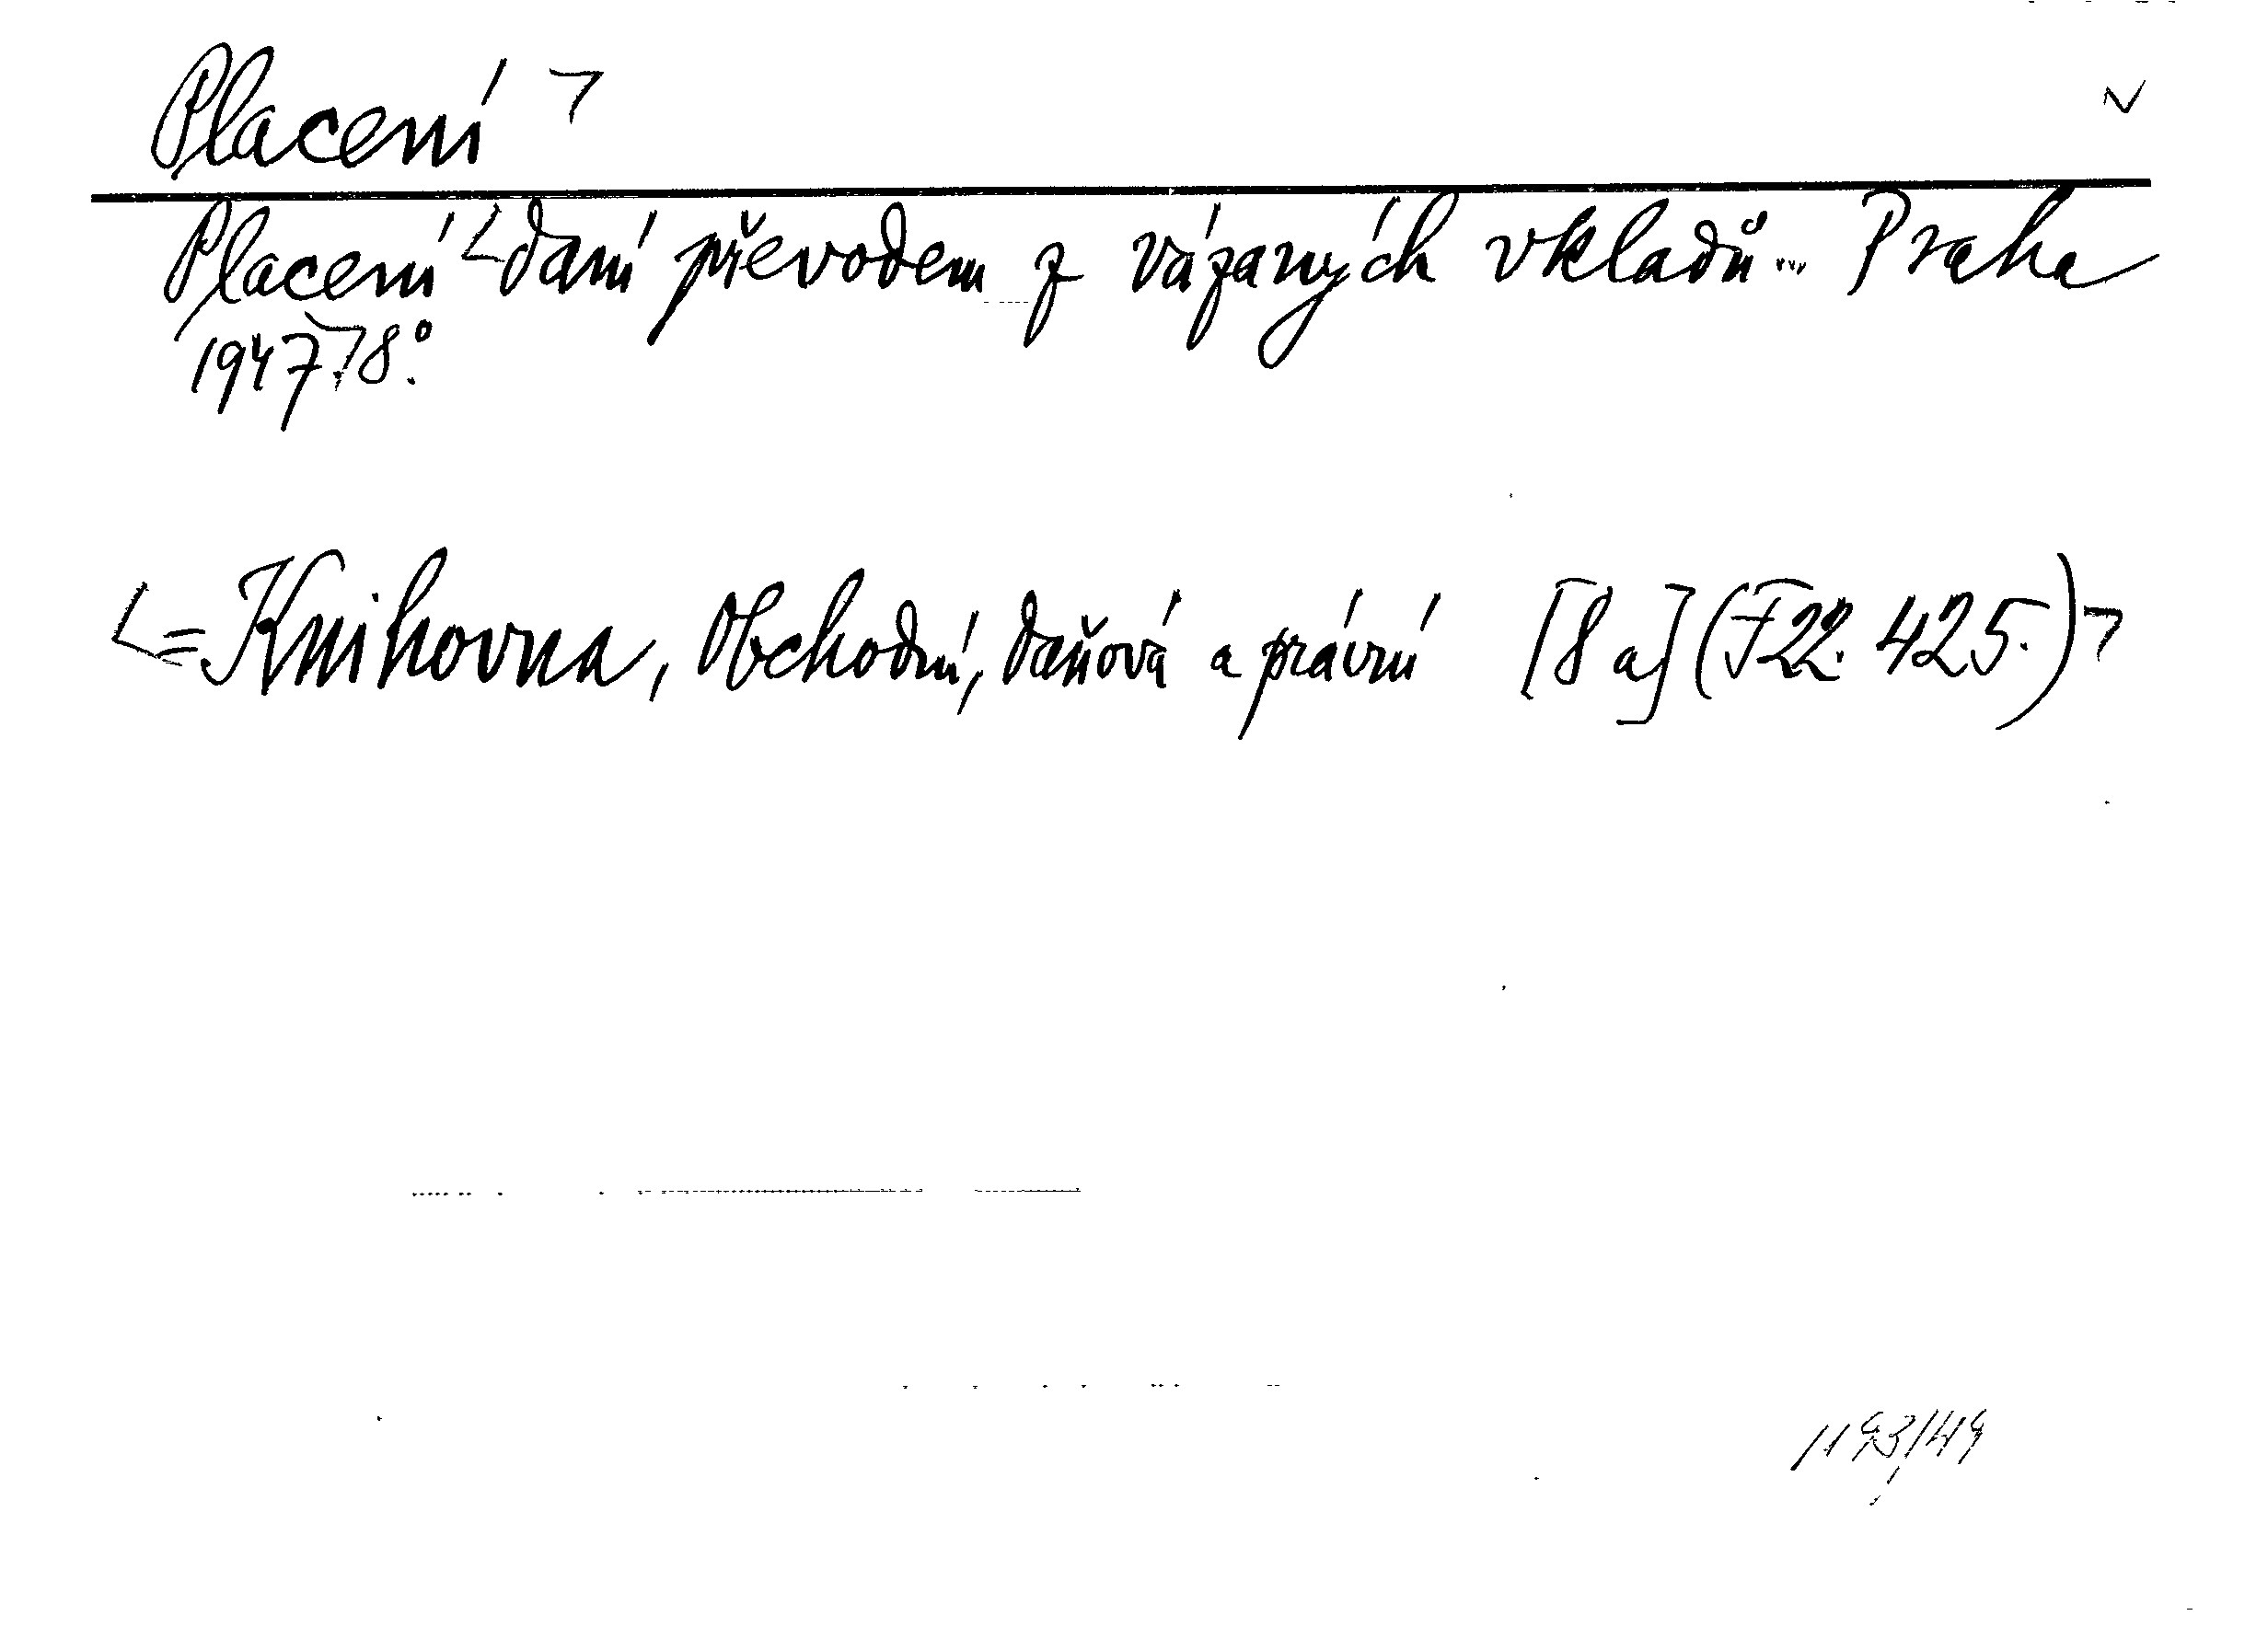 Placení
Placení daní převodem z vázaných vkladů... Praha
1947. 8°.
= Knihovna, Obchodní, daňová a právní [8a] (F 22. 425.)
1193/49